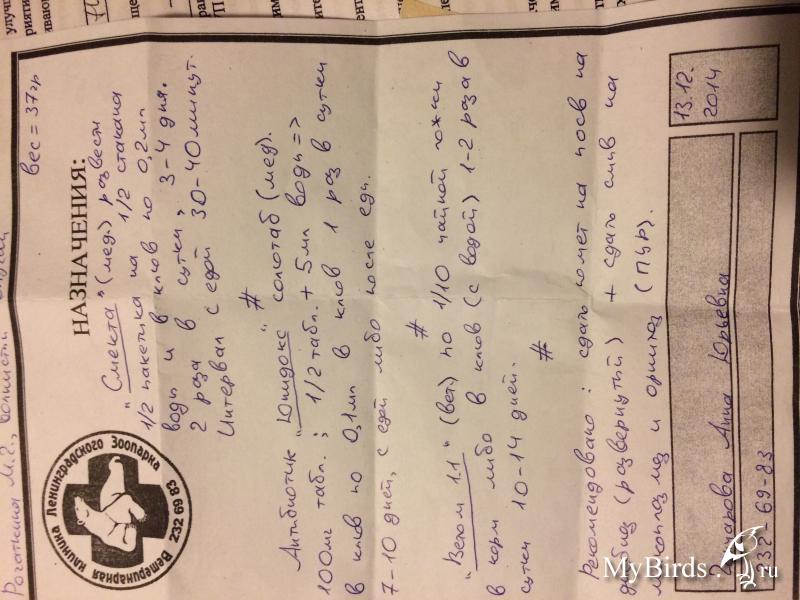 Рогаткина М.Г., волнистый попугай
вес = 37гр
НАЗНАЧЕНИЯ:
Ветеринарная клиника Ленинградского Зоопарка
232 69 83
"Смекта" (мед.) развести
1/2 пакетика на 1/2 стакана
воды и в клюв по 0,2мл
2 раза в сутки, 3-4 дня.
Интервал с едой 30-40 минут.
#
Антибиотик "Юнидокс" солютаб (мед).
100мг табл.; 1/2 табл. + 5мл воды =>
в клюв по 0,1мл в клюв 1 раз в сутки
7-10 дней, с едой либо после еды.
#
"Ветом 1.1" (вет.) по 1/10 чайной ложки
в корм либо в клюв (с водой) 1-2 раза в
сутки 10-14 дней.
#
Рекомендовано: сдать помет на посев на
дисбиоз (развернутый) + сдать смыв на
микоплазмоз и орнитоз (ПЦР).
Анна Юрьевна
13.12.
2014
232 69-83
MyBirds.ru